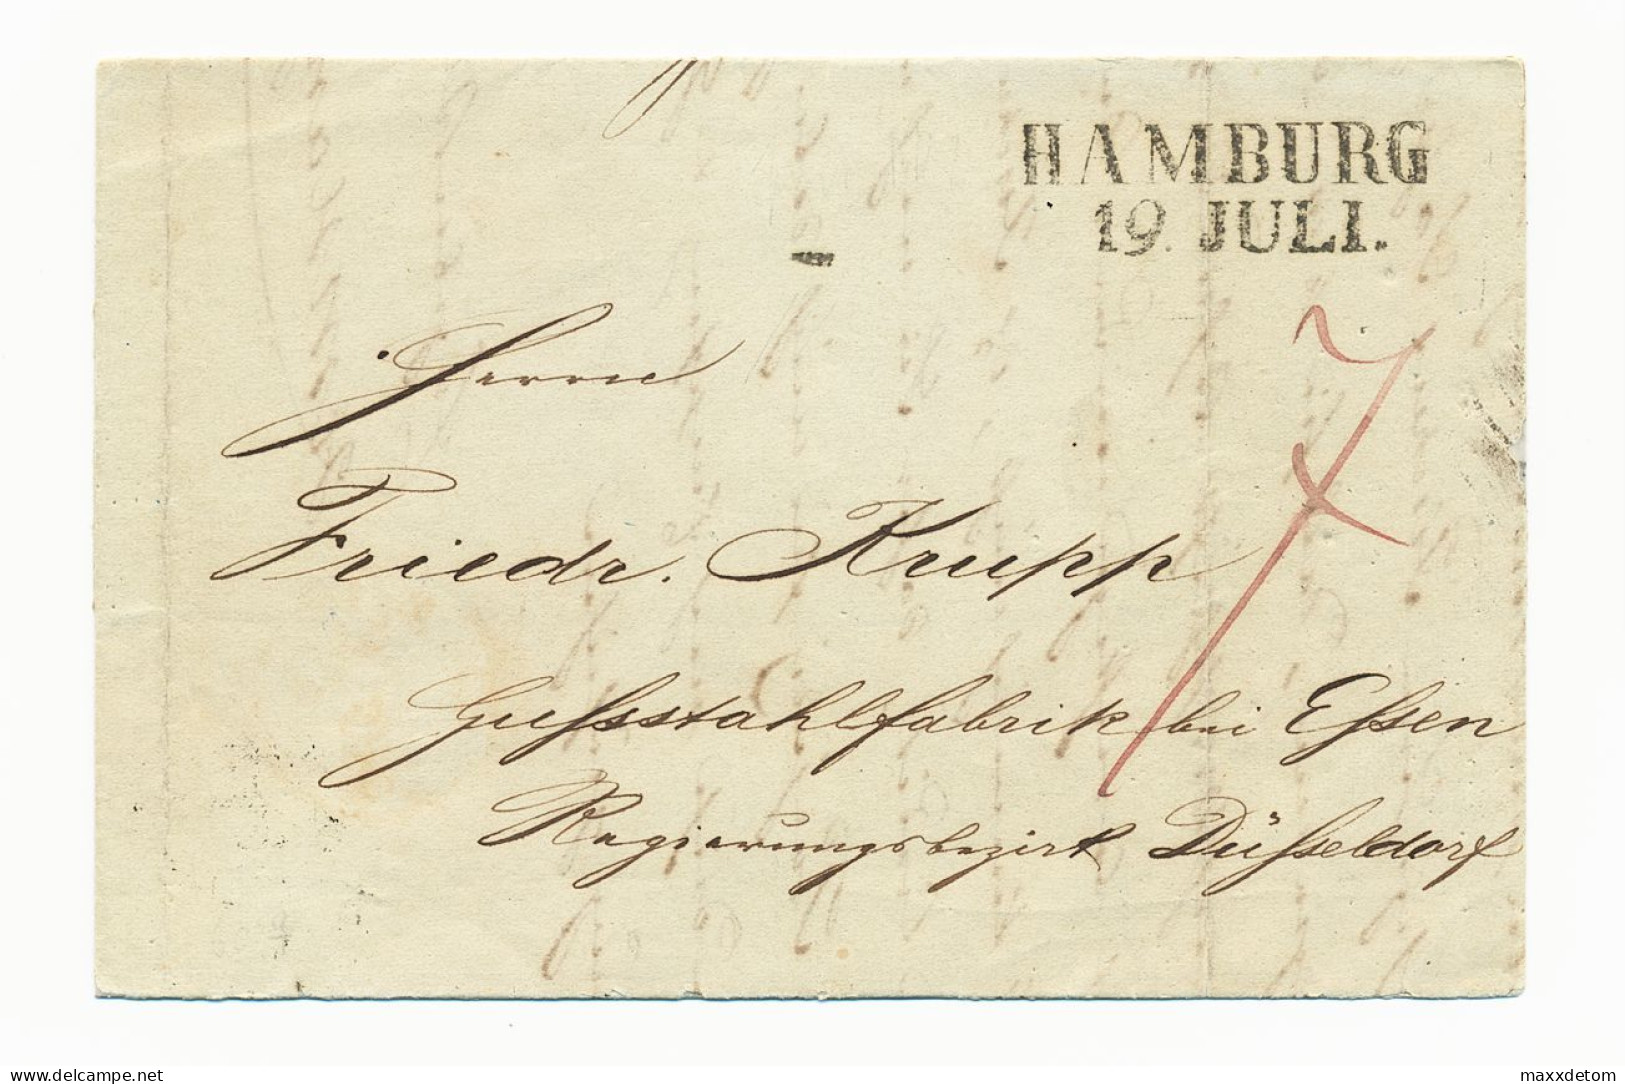 HAMBURG
19. JULI.
Herrn
Friedr. Krupp
7
Gußsstahlfabrik bei Eßsen
Regierungsbezirk Düßseldorf
delcampe.net
maxxdetom